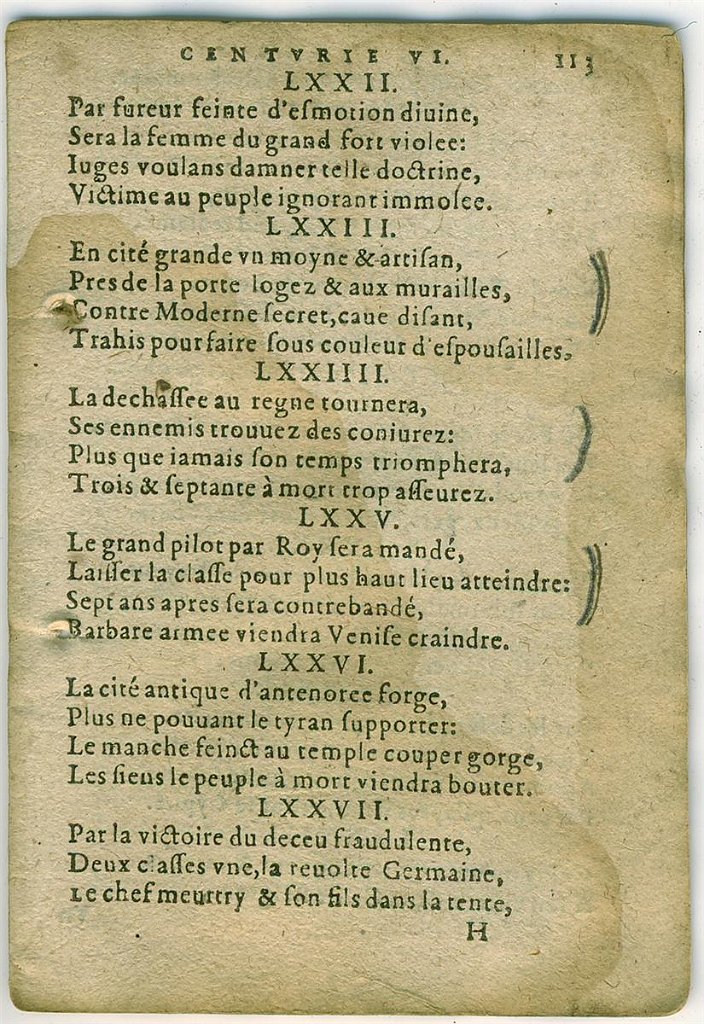 CENTVRIE VI. 113
LXXII.
Par fureur feinte d'eſmotion diuine,
Sera la femme du grand fort violee:
Iuges voulans damner telle doctrine,
Victime au peuple ignorant immolee.
LXXIII.
En cité grande vn moyne & artiſan,
Pres de la porte logez & aux murailles,
Contre Moderne ſecret, caue diſant,
Trahis pour faire ſous couleur d'eſpouſailles.
LXXIIII.
La dechaſſee au regne tournera,
Ses ennemis trouuez des coniurez:
Plus que iamais ſon temps triomphera,
Trois & ſeptante à mort trop aſſeurez.
LXXV.
Le grand pilot par Roy ſera mandé,
Laiſſer la claſſe pour plus haut lieu atteindre:
Sept ans apres ſera contrebandé,
Barbare armee viendra Veniſe craindre.
LXXVI.
La cité antique d'antenoree forge,
Plus ne pouuant le tyran ſupporter:
Le manche feinct au temple couper gorge,
Les ſiens le peuple à mort viendra bouter.
LXXVII.
Par la victoire du deceu fraudulente,
Deux claſſes vne, la reuolte Germaine,
Le chef meurtry & ſon fils dans la tente,
H